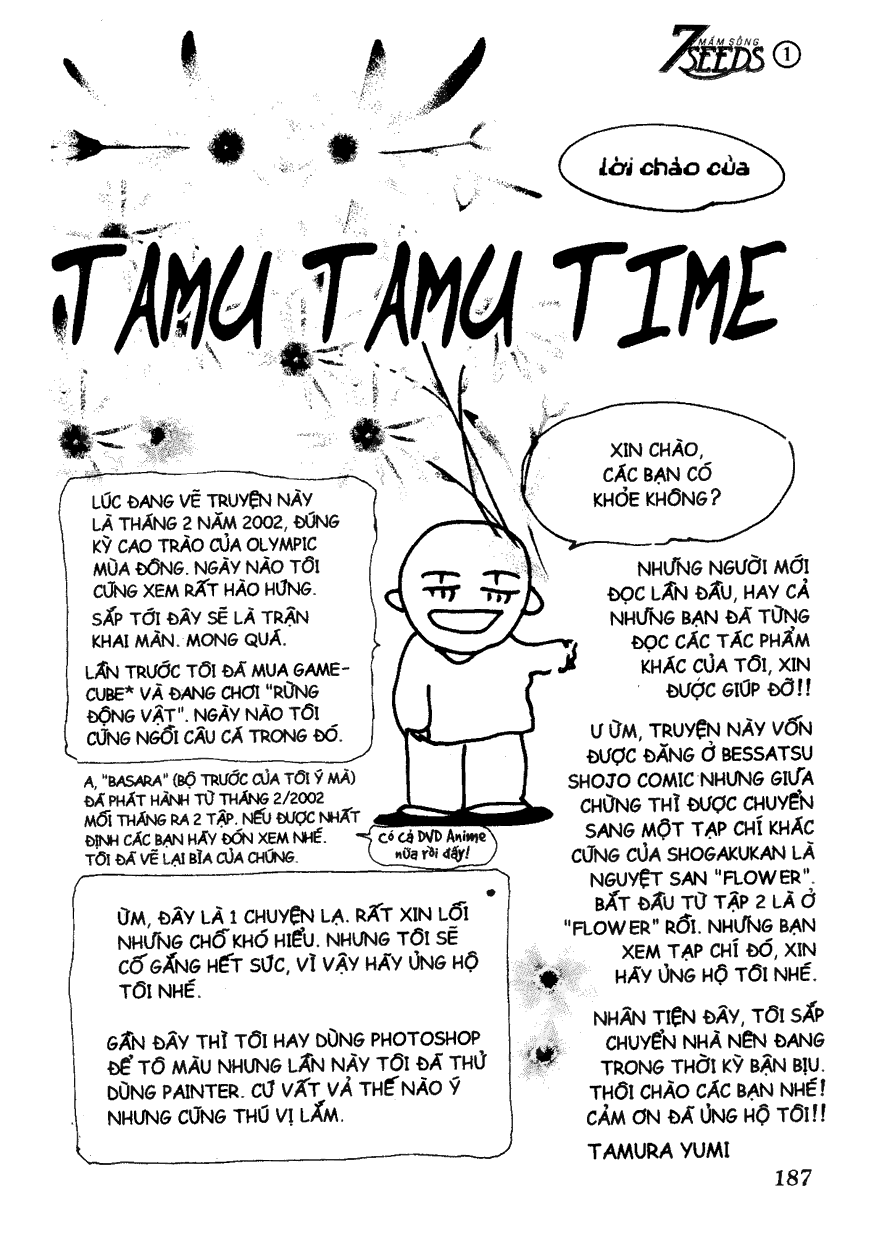 7 MẦM SỐNG
SEEDS 1
lời chào của
TAMU TAMU TIME
XIN CHÀO,
CÁC BẠN CÓ
KHỎE KHÔNG?
LÚC ĐANG VẼ TRUYỆN NÀY
LÀ THÁNG 2 NĂM 2002, ĐÚNG
KỲ CAO TRÀO CỦA OLYMPIC
MÙA ĐÔNG. NGÀY NÀO TÔI
CŨNG XEM RẤT HÀO HỨNG.
SẮP TỚI ĐÂY SẼ LÀ TRẬN
KHAI MÀN. MONG QUÁ.
LẦN TRƯỚC TÔI ĐÃ MUA GAME-
CUBE* VÀ ĐANG CHƠI "RỪNG
ĐỘNG VẬT". NGÀY NÀO TÔI
CŨNG NGỒI CÂU CÁ TRONG ĐÓ.
A, "BASARA" (BỘ TRƯỚC CỦA TÔI Ý MÀ)
ĐÃ PHÁT HÀNH TỪ THÁNG 2/2002
MỖI THÁNG RA 2 TẬP. NẾU ĐƯỢC NHẤT
ĐỊNH CÁC BẠN HÃY ĐÓN XEM NHÉ.
TÔI ĐÃ VẼ LẠI BÌA CỦA CHÚNG.
Có cả DVD Anime
nữa rồi đấy!
ỪM, ĐÂY LÀ 1 CHUYỆN LẠ. RẤT XIN LỖI
NHỮNG CHỖ KHÓ HIỂU. NHƯNG TÔI SẼ
CỐ GẮNG HẾT SỨC, VÌ VẬY HÃY ỦNG HỘ
TÔI NHÉ.
GẦN ĐÂY THÌ TÔI HAY DÙNG PHOTOSHOP
ĐỂ TÔ MÀU NHƯNG LẦN NÀY TÔI ĐÃ THỬ
DÙNG PAINTER. CỨ VẤT VẢ THẾ NÀO Ý
NHƯNG CŨNG THÚ VỊ LẮM.
NHỮNG NGƯỜI MỚI
ĐỌC LẦN ĐẦU, HAY CẢ
NHỮNG BẠN ĐÃ TỪNG
ĐỌC CÁC TÁC PHẨM
KHÁC CỦA TÔI, XIN
ĐƯỢC GIÚP ĐỠ!!
Ư ỪM, TRUYỆN NÀY VỐN
ĐƯỢC ĐĂNG Ở BESSATSU
SHOJO COMIC NHƯNG GIỮA
CHỪNG THÌ ĐƯỢC CHUYỂN
SANG MỘT TẠP CHÍ KHÁC
CŨNG CỦA SHOGAKUKAN LÀ
NGUYỆT SAN "FLOWER".
BẮT ĐẦU TỪ TẬP 2 LÀ Ở
"FLOWER" RỒI. NHỮNG BẠN
XEM TẠP CHÍ ĐÓ, XIN
HÃY ỦNG HỘ TÔI NHÉ.
NHÂN TIỆN ĐÂY, TÔI SẮP
CHUYỂN NHÀ NÊN ĐANG
TRONG THỜI KỲ BẬN BỊU.
THÔI CHÀO CÁC BẠN NHÉ!
CẢM ƠN ĐÃ ỦNG HỘ TÔI!!
TAMURA YUMI
187